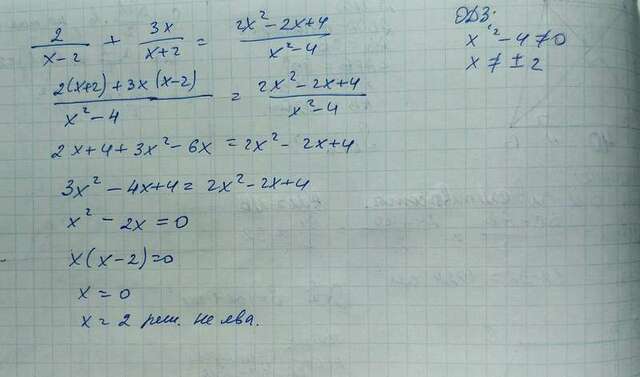 2/(x-2) + 3x/(x+2) = (2x² - 2x + 4)/(x² - 4)
ОДЗ:
x² - 4 ≠ 0
x ≠ ± 2
(2(x+2) + 3x(x-2))/(x² - 4) = (2x² - 2x + 4)/(x² - 4)
2x + 4 + 3x² - 6x = 2x² - 2x + 4
3x² - 4x + 4 = 2x² - 2x + 4
x² - 2x = 0
x(x-2) = 0
x = 0
x = 2 реш. не явл.